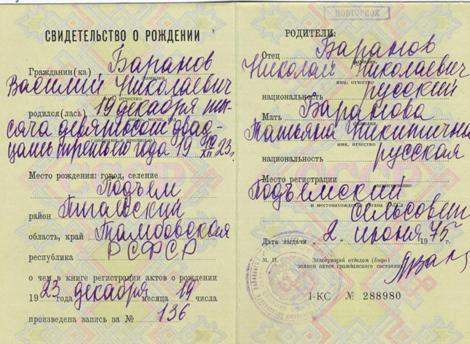 СВИДЕТЕЛЬСТВО О РОЖДЕНИИ
Гражданин(ка) Баранов
Василий Николаевич
отчество
родился(лась) 19 декабря ты-
сяча девятьсот двад-
цать третьего года 19 19/XII 23.
Место рождения: город, селение
Подъем
район
область, край Тамбовская
республика РСФСР
о чем в книге регистрации актов о рождении
1923 декабря месяца 19 числа
произведена запись за № 136
РОДИТЕЛИ:
Отец Баранов
Николай Николаевич
имя, отчество
русский
национальность
Мать Баранова
Татьяна Никитична
имя, отчество
русская
национальность
Место регистрации
Подъемский
сельсовет
Дата выдачи 2. июня 1975 г.
М. П. Заведующий отделом (бюро)
записи актов гражданского состояния
I-КС № 288980